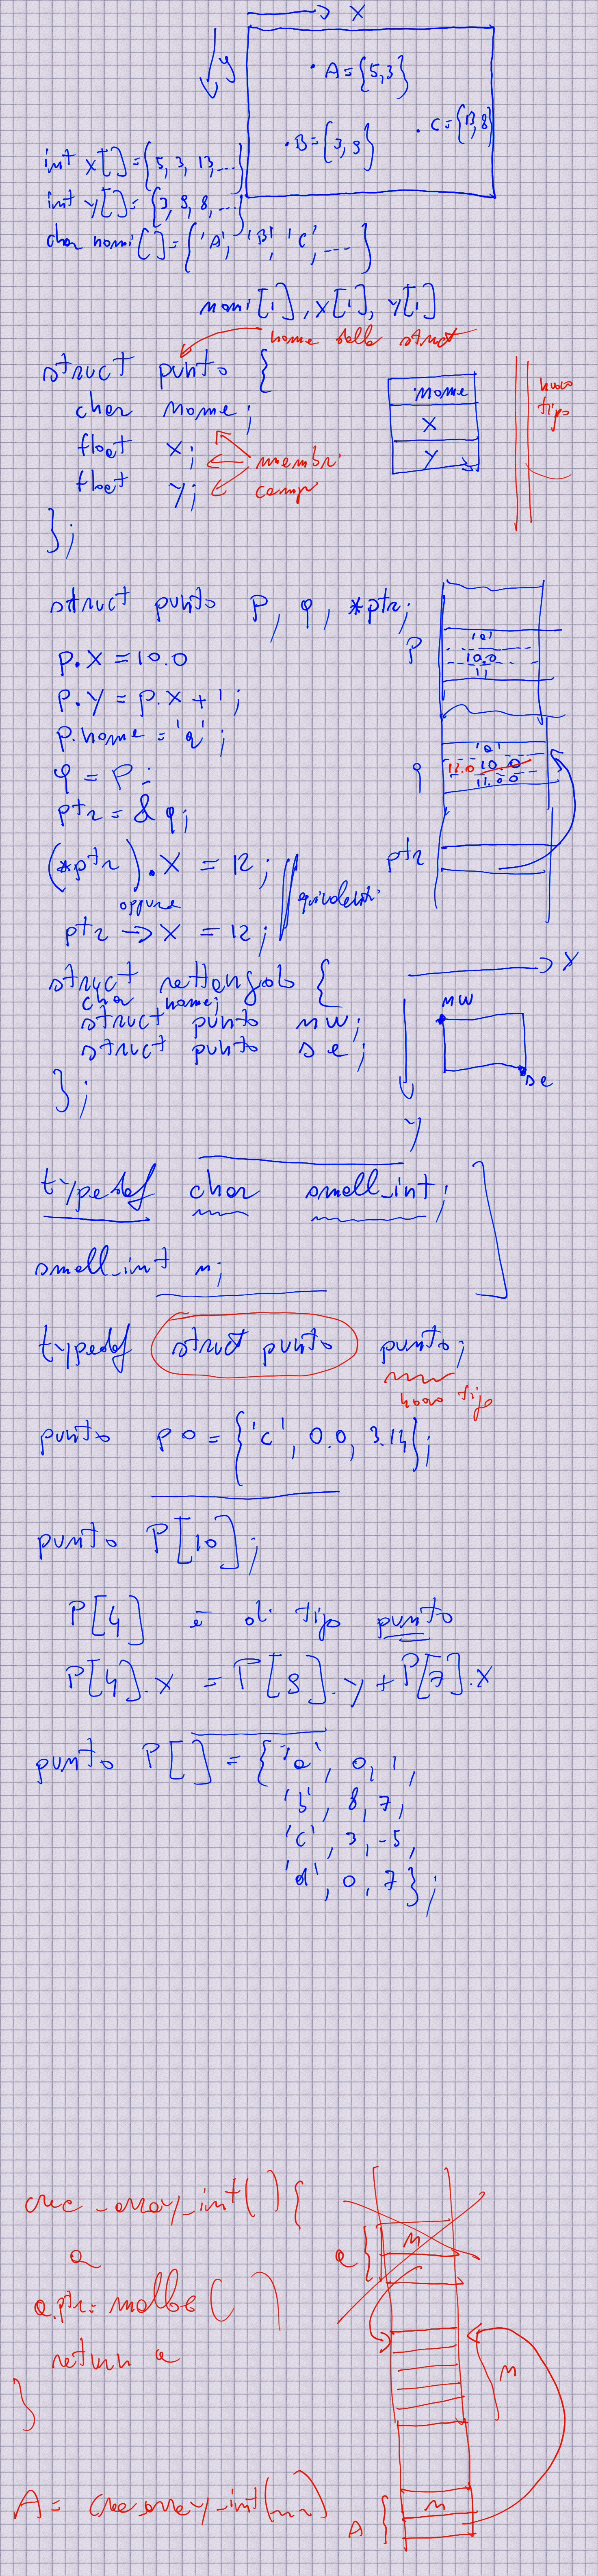 X
y
A={5,3}
B={3,9}
C={13,8}
int X[]={5, 3, 13, ...}
int y[]={3, 9, 8, ...}
char nomi[]={'A', 'B', 'C', ...}
nomi[i], X[i], y[i]
nome della struct
struct punto {
char nome;
float x;
float y;
};
membri
campi
nome
X
Y
nuovo
tipo
struct punto p, q, *ptr;
p.x=10.0
p.y = p.x+1;
p.nome='a';
q = p;
ptr = &q;
(*ptr).x = 12;
oppure
ptr->x = 12;
equivalenti
p
'a'
10.0
11
q
'a'
12.0 10.0
11.00
ptr
struct rettangolo {
char nome;
struct punto nw;
struct punto se;
};
X
nw
se
y
typedef char small_int;
small_int n;
typedef struct punto punto;
nuovo tipo
punto p0={'c', 0.0, 3.14};
punto P[10];
P[4] è di tipo punto
P[4].x = P[9].y+P[7].x
punto P[]={'a', 0, 1,
'b', 8, 7,
'c', 3, -5,
'd', 0, 7};
crea_array_int() {
a
a.ptr=malloc( )
return a
}
a
n
n
A= crea_array_int(...)
A
n